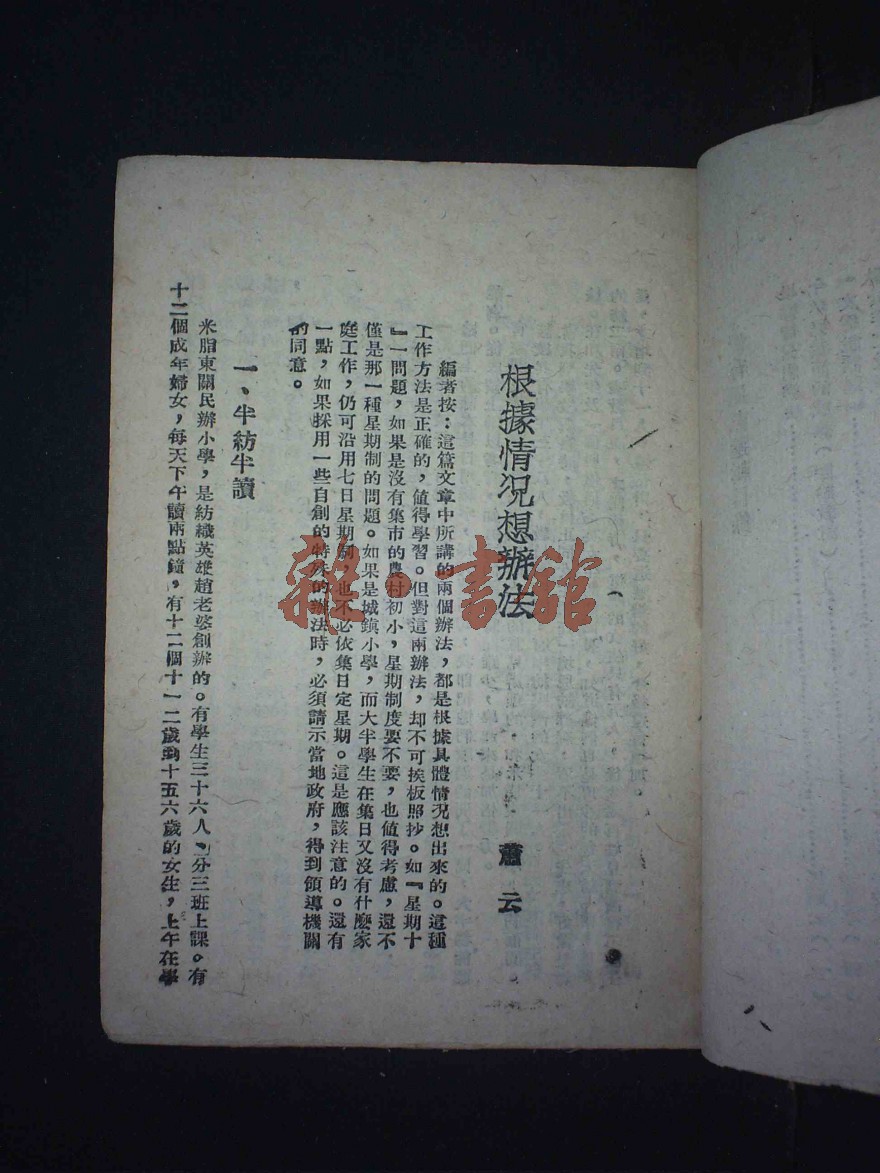 根據情况想辦法
蕭云
編者按：這篇文章中所講的兩個辦法，都是根據具體情况想出來的。這種
工作方法是正確的，值得學習。但對這兩辦法，却不可挨板照抄。如『星期十
』一問題，如果是沒有集市的農村初小，星期制度要不要，也値得考慮，還不
僅是那一種星期制的問題。如果是城鎮小學，而大半學生在集日又沒有什麼家
庭工作，仍可沿用七日星期制，也不必依集日定星期。這是應該注意的。還有
一點，如果採用一些自創的特殊的辦法時，必須請示當地政府，得到領導機關
的同意。
一、半紡半讀
米脂東關民辦小學，是紡織英雄趙老婆創辦的。有學生三十六人，分三班上課。有
十二個成年婦女，每天下午讀兩點鐘，有十二個十一二歲到十五六歲的女生，上午在學
雜·書館